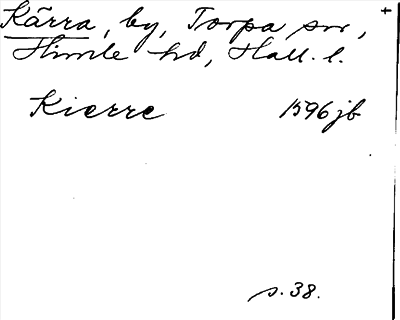 Kärra, by, Torpa sn,
Himle hd, Hall. l.
Kierre 1596 jb
s. 38.